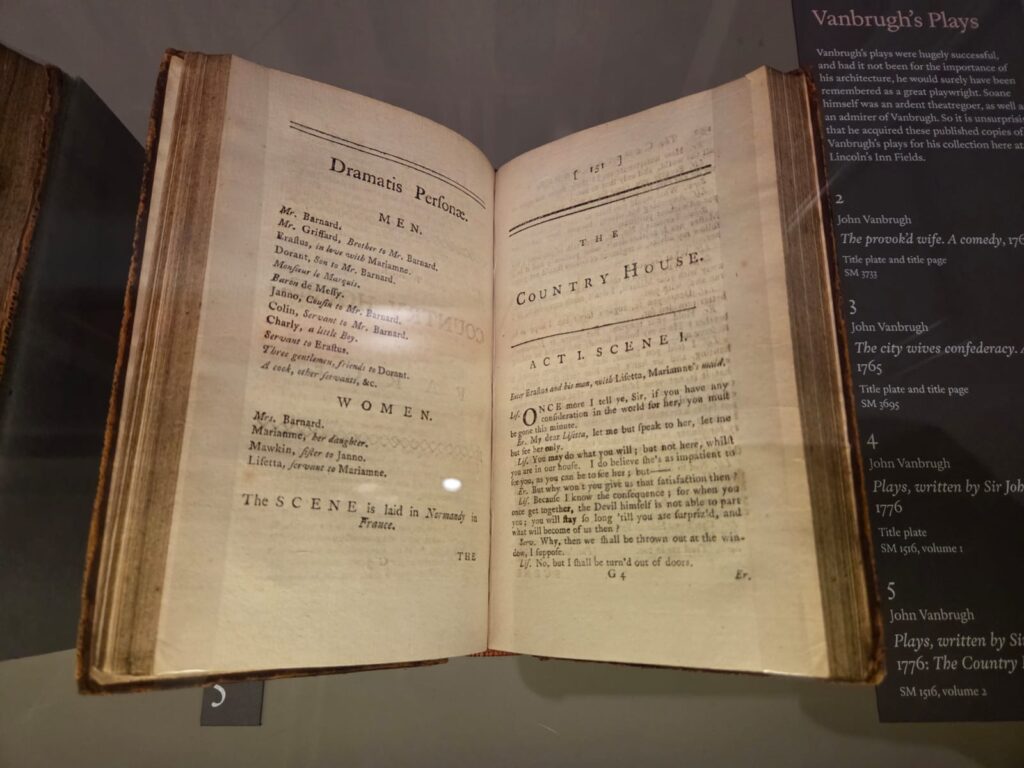 Dramatis Personæ.
MEN.
Mr. Barnard.
Mr. Griffard, Brother to Mr. Barnard.
Eraſtus, in love with Mariamne.
Dorant, Son to Mr. Barnard.
Monſieur le Marquis.
Baron de Meſſy.
Janno, Couſin to Mr. Barnard.
Colin, Servant to Mr. Barnard.
Charly, a little Boy.
Servant to Eraſtus.
Three gentlemen, friends to Dorant.
A cook, other ſervants, &c.
WOMEN.
Mrs. Barnard.
Mariamne, her daughter.
Mawkin, ſiſter to Janno.
Liſetta, ſervant to Mariamne.
The SCENE is laid in Normandy in
France.
THE
[ 151 ]
THE
COUNTRY HOUSE.
ACT I. SCENE I.
Enter Eraſtus and his man, with Liſetta, Mariamne's maid.
Liſ. ONCE more I tell ye, Sir, if you have any
conſideration in the world for her, you muſt
be gone this minute.
Er. My dear Liſetta, let me but ſpeak to her, let me
but ſee her only.
Liſ. You may do what you will; but not here, whilſt
you are in our houſe. I do believe ſhe's as impatient to
ſee you, as you can be to ſee her; but——
Er. But why won't you give us that ſatisfaction then?
Liſ. Becauſe I know the conſequence; for when you
once get together, the Devil himſelf is not able to part
you; you will ſtay ſo long 'till you are ſurpriz'd, and
what will become of us then?
Serv. Why, then we ſhall be thrown out at the win-
dow, I ſuppoſe.
Liſ. No, but I ſhall be turn'd out of doors.
G 4
Er.
5
Vanbrugh's Plays
Vanbrugh's plays were hugely successful,
and had it not been for the importance of
his architecture, he would surely have been
remembered as a great playwright. Soane
himself was an ardent theatregoer, as well a
an admirer of Vanbrugh. So it is unsurprisi
that he acquired these published copies of
Vanbrugh's plays for his collection here at
Lincoln's Inn Fields.
2
John Vanbrugh
The provok'd wife. A comedy, 176
Title plate and title page
SM 3733
3
John Vanbrugh
The city wives confederacy. A
1765
Title plate and title page
SM 3695
4
John Vanbrugh
Plays, written by Sir Joh
1776
Title plate
SM 1516, volume 1
5
John Vanbrugh
Plays, written by Sir
1776: The Country
SM 1516, volume 2